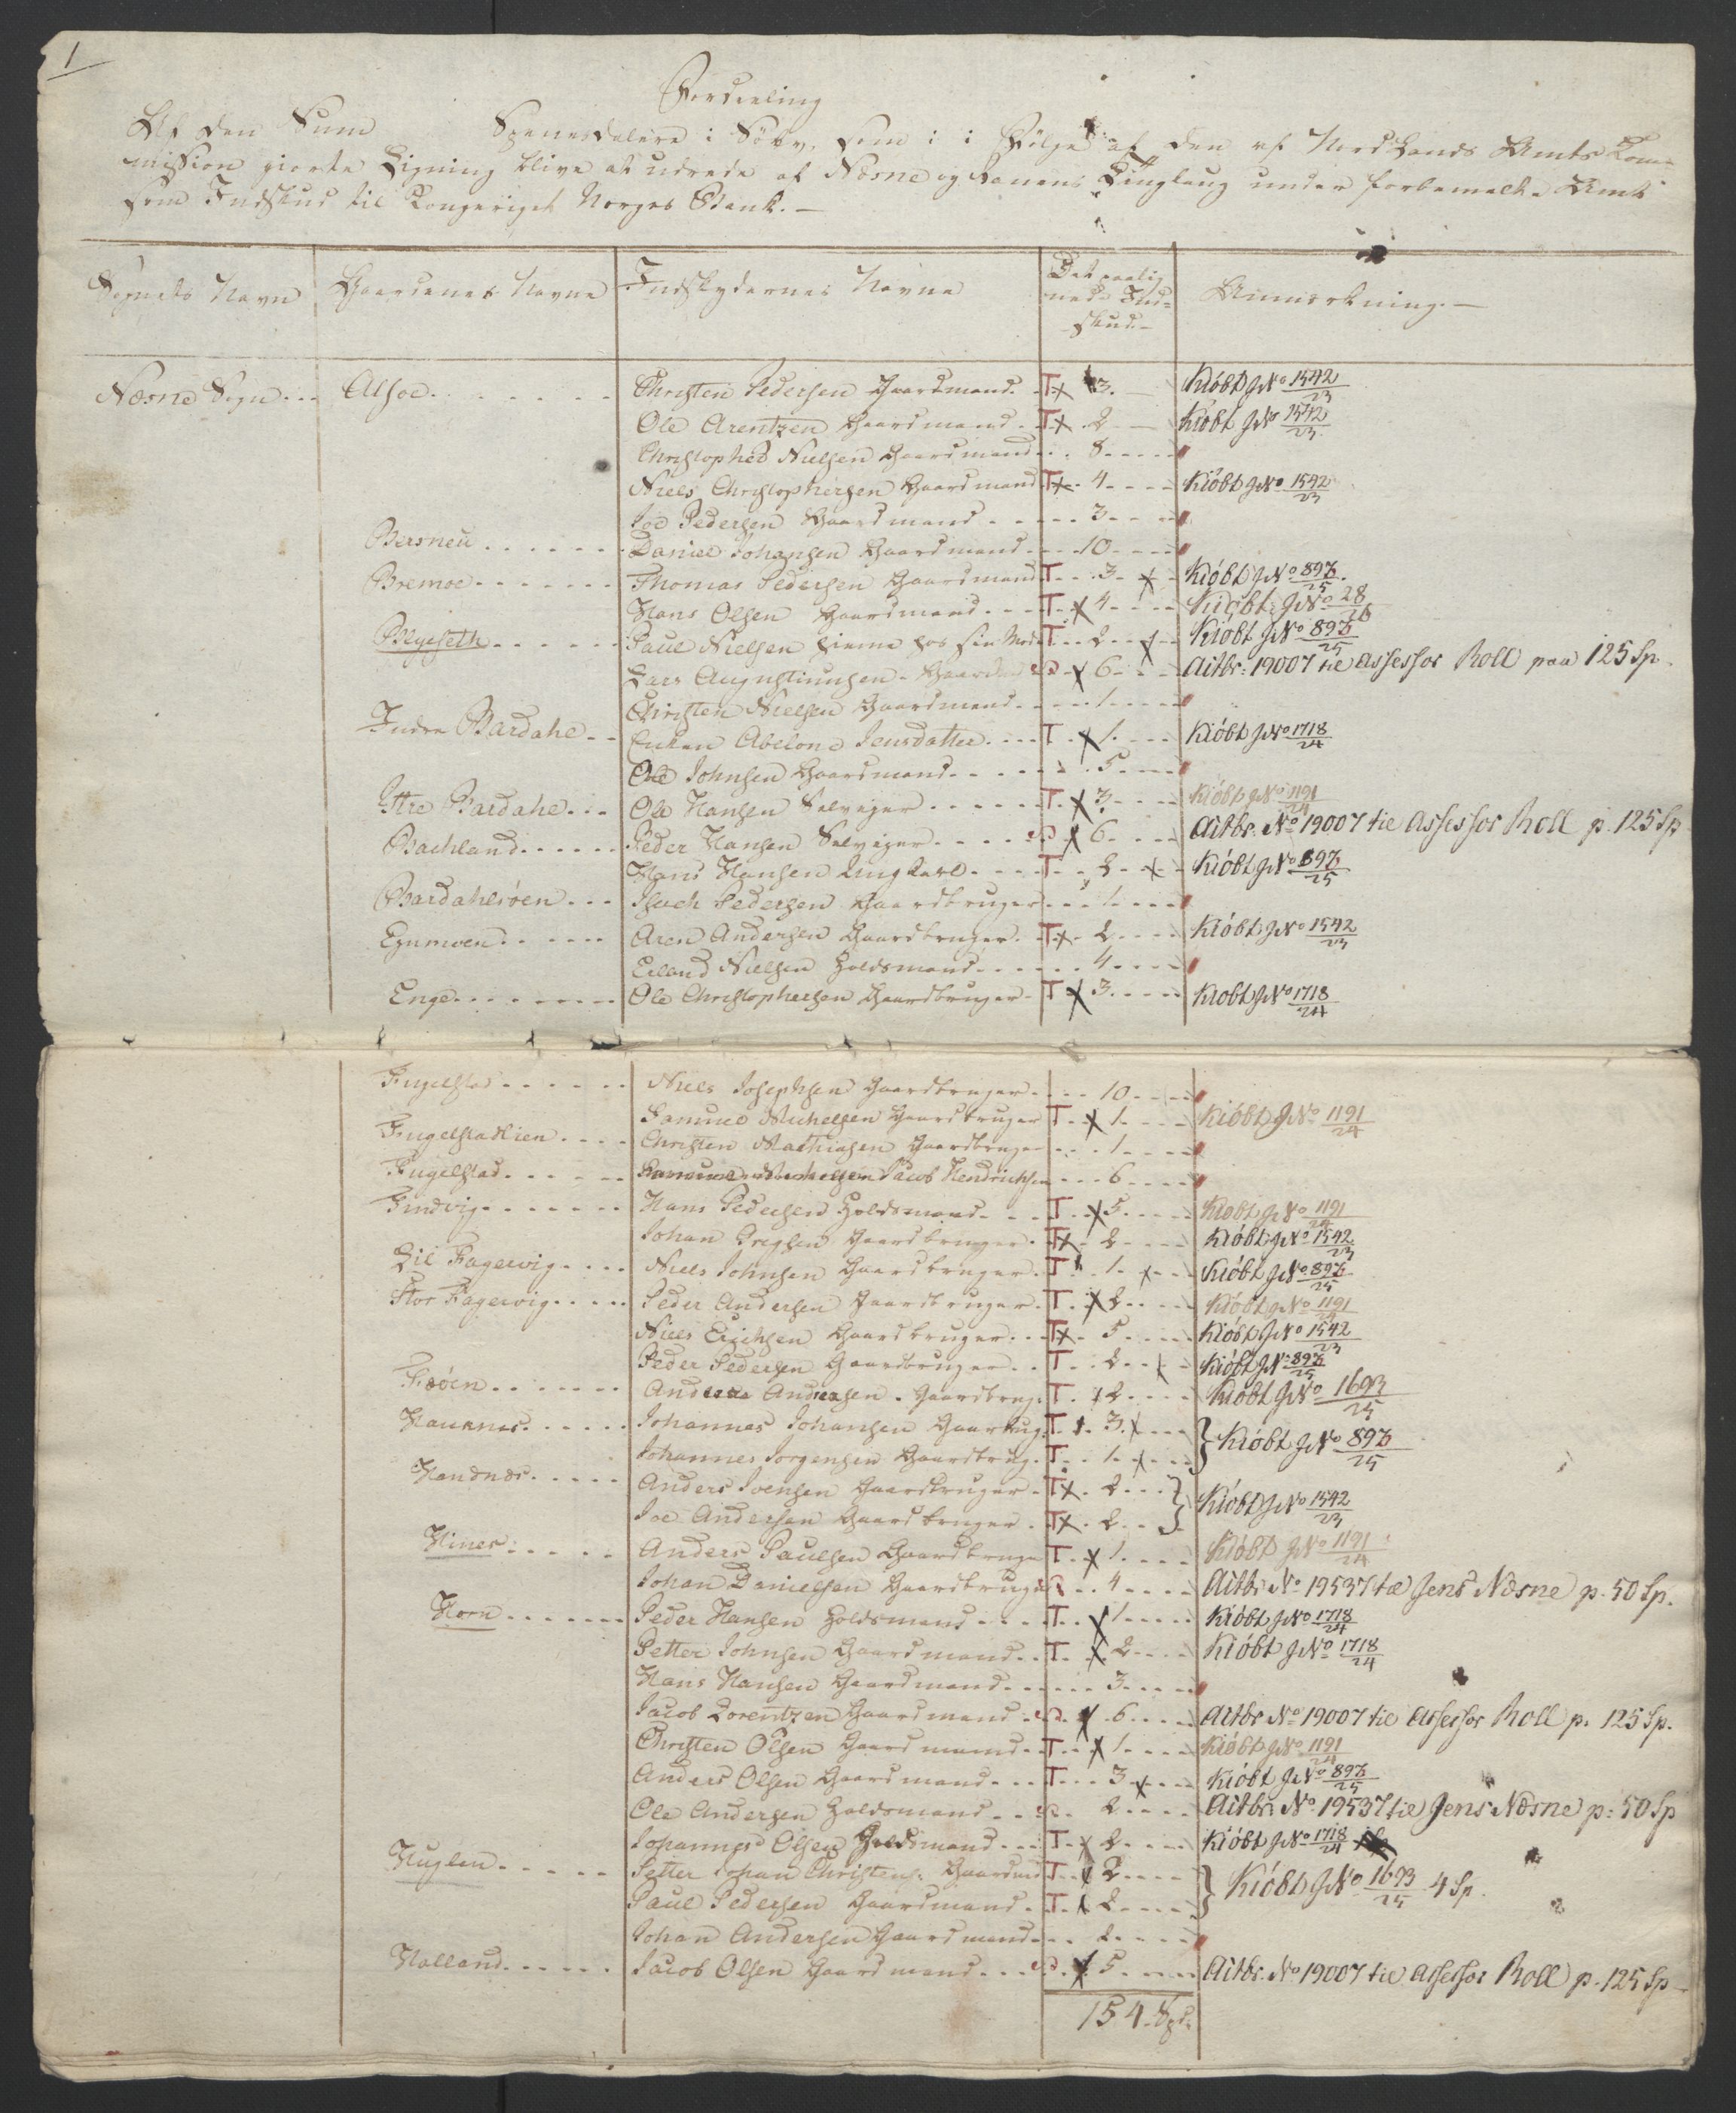 1
Fordeeling
Af den Sum Speciesdalere i Sölv, som i Fölge af den af Nordlands Amts Com=
mission giorte Ligning blive at udrede af Næsne og Ranens Tinglaug under forbemælte Amt
som Indskud til Kongeriget Norges Bank.—
Sognets Navn Gaardenes Navne Indskydernes Navne Det paalig
nede Ind=
skud.— Anmærkning.—
Næsne Sogn Alsoe Christen Pedersen Gaardmand T x 3. Kiöbt J No 1542/23
Ole Arentzen Gaardmand T x 2 Kiöbt J No 1542/23
Christopher Nielsen Gaardmand 8
Niels Christophersen Gaardmand T x 4 Kiöbt J No 1542/23
Joe Pedersen Gaardmand 3
Bersneu Daniel Johansen Gaardmand 10
Bremoe Thomas Pedersen Gaardmand T 3 x Kiöbt J No 897/25
Hans Olsen Gaardmand T x 4 Kiöbt J No 28/26
Blyeseth Paul Nielsen hiemme hos sin T 2 x Kiöbt J No 897/25
Lars Augustinusen Gaardmd x 6 Aitbr: 19007 til Assessor Roll paa 125 Sp.
Christen Nielsen Gaardmand 1
Indre Bardahl Enken Abelone Jensdatter T x 1 Kiöbt J No 1718/24
Ole Johnsen Gaardmand 5
Ittre Bardahl Ole Hansen Selveyer T x 3 Kiöbt J No 1191/24
Bachland Peder Hansen Selveyer x 6 Aitbr. No 19007 til Assessor Roll p. 125 Sp
Hans Hansen Ungkarl T 2 x Kiöbt J No 897/25
Bardahlsöen Isach Pedersen Gaardbruger 1
Egnmoen Aren Andersen Gaardbruger T x 2 Kiöbt J No 1542/23
Erland Nielsen Holdsmand 4
Enge Ole Christophersen Gaardbruger T x 3 Kiöbt J No 1718/24
Fugelstad Niels Josephsen Gaardbruger 10
Samuel Michelsen Gaardbruger T x 1 Kiöbt J No 1191/24
Fugelstadlien Christen Mathiasen Gaardbruger 1
Fugelstad Samuel Michelsen Jacob Hendrichsen 6
Findvig Hans Pedersen Holdsmand T x 5 Kiöbt J No 1191/24
Johan Gregsen Gaardbruger T x 2 Kiöbt J No 1542/23
Lil Fagervig Niels Johnsen Gaardbruger T 1 x Kiöbt J No 897/25
Stor Fagervig Peder Andersen Gaardbruger T x 2 Kiöbt J No 1191/24
Niels Erichsen Gaardbruger T x 5 Kiöbt J No 1542/23
Peder Pedersen Gaardbruger T 2 x Kiöbt J No 897/25
Fæöen Anders Andreasen Gaardbrug: T x 2 Kiöbt J No 1693/25
Hauknes Johannes Johansen Gaardbrug: T 3 x } Kiöbt J No 897/25
Johannes Jorgensen Gaardbrug. T 1 x
Handnæs Anders Joensen Gaardbruger T x 2 } Kiöbt J No 1542/23
Joe Andersen Gaardbruger T x 2
Hines Anders Paulsen Gaardbruge T x 1 Kiöbt J No 1191/24
Johan Danielsen Gaardbruge 4 Aitbr No 19537 til Jens Næsne p. 50 Sp.
Horn Peder Hansen Holdsmand T x 1 Kiöbt J No 1718/24
Petter Johnsen Gaardmand T x 2 Kiöbt J No 1718/24
Hans Hansen Gaardmand 3
Jacob Lorentzen Gaardmand x 6 Aitbr No 19007 til Assessor Roll p. 125 Sp.
Christen Olsen Gaardmand T x 1 Kiöbt J No 1191/24
Anders Olsen Gaardmand T 3 x Kiöbt J No 897/25
Ole Andersen Holdsmand 2 Aitbr. No 19537 til Jens Næsne p. 50 Sp
Johannes Olsen Holdsmand T x 2 Kiöbt J No 1718/24
Huglen Petter Johan Christens: Gaardmd T x 2 } Kiöbt J No 1693/25 4 Sp.
Paul Pedersen Gaardmand T x 2
Johan Andersen Gaardmand 2
Halland Jacob Olsen Gaardmand x 5 Aitbr. No 19007 til Assessor Roll p. 125 Sp
154 Spd: